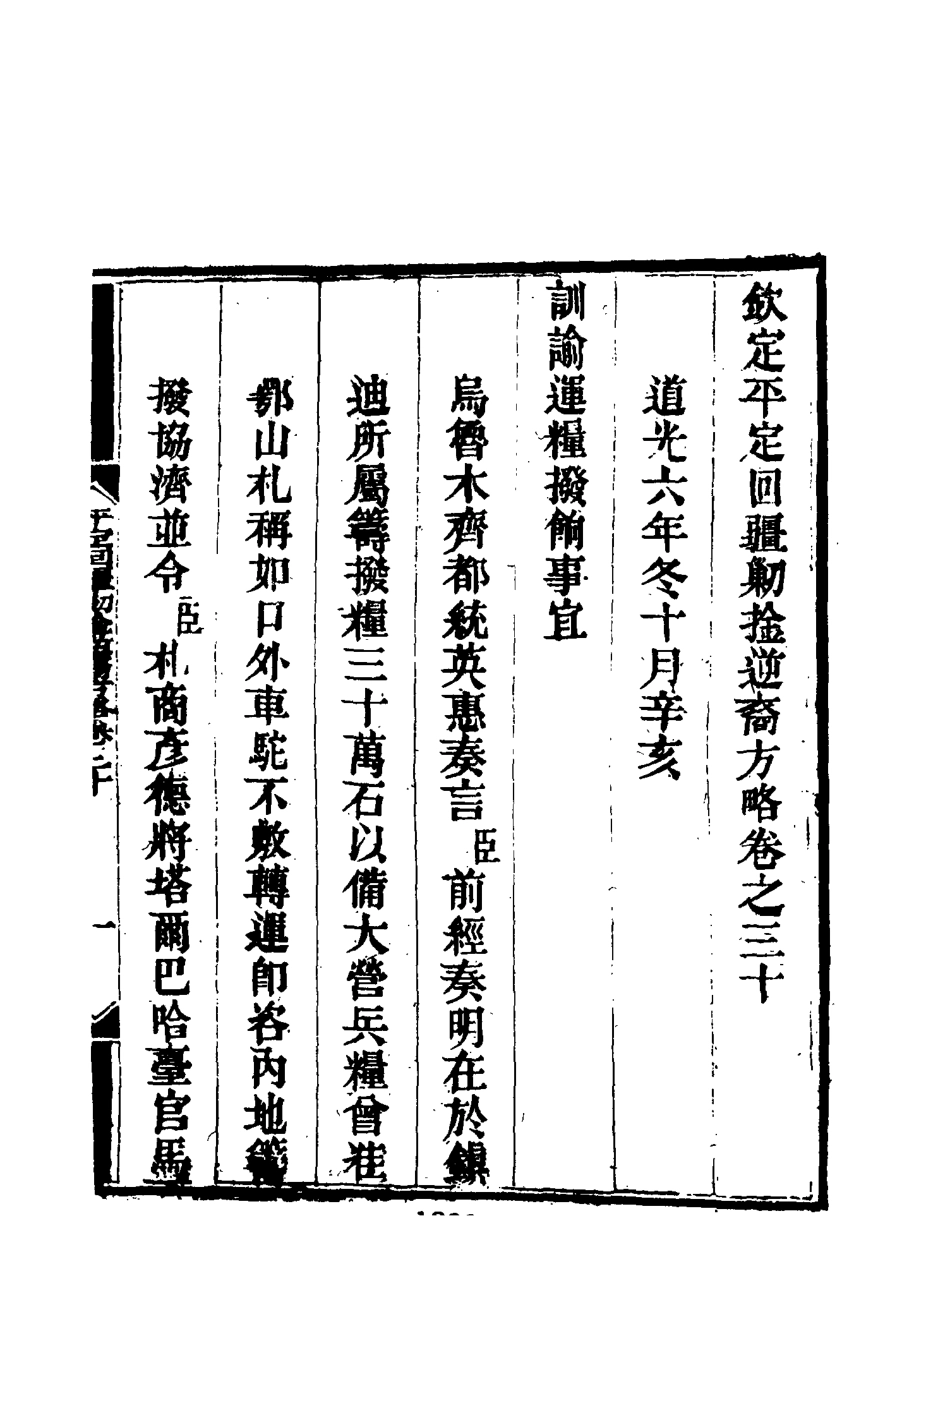 欽定平定回疆勦捦逆裔方略卷之三十
道光六年冬十月辛亥
訓諭運糧撥餉事宜
烏魯木齊都統英惠奏言臣前經奏明在於鎮
迪所屬籌撥糧三十萬石以備大營兵糧曾准
鄂山札稱如口外車駝不敷轉運卽咨內地籌
撥協濟並令臣札商彥德將塔爾巴哈臺官馬
一